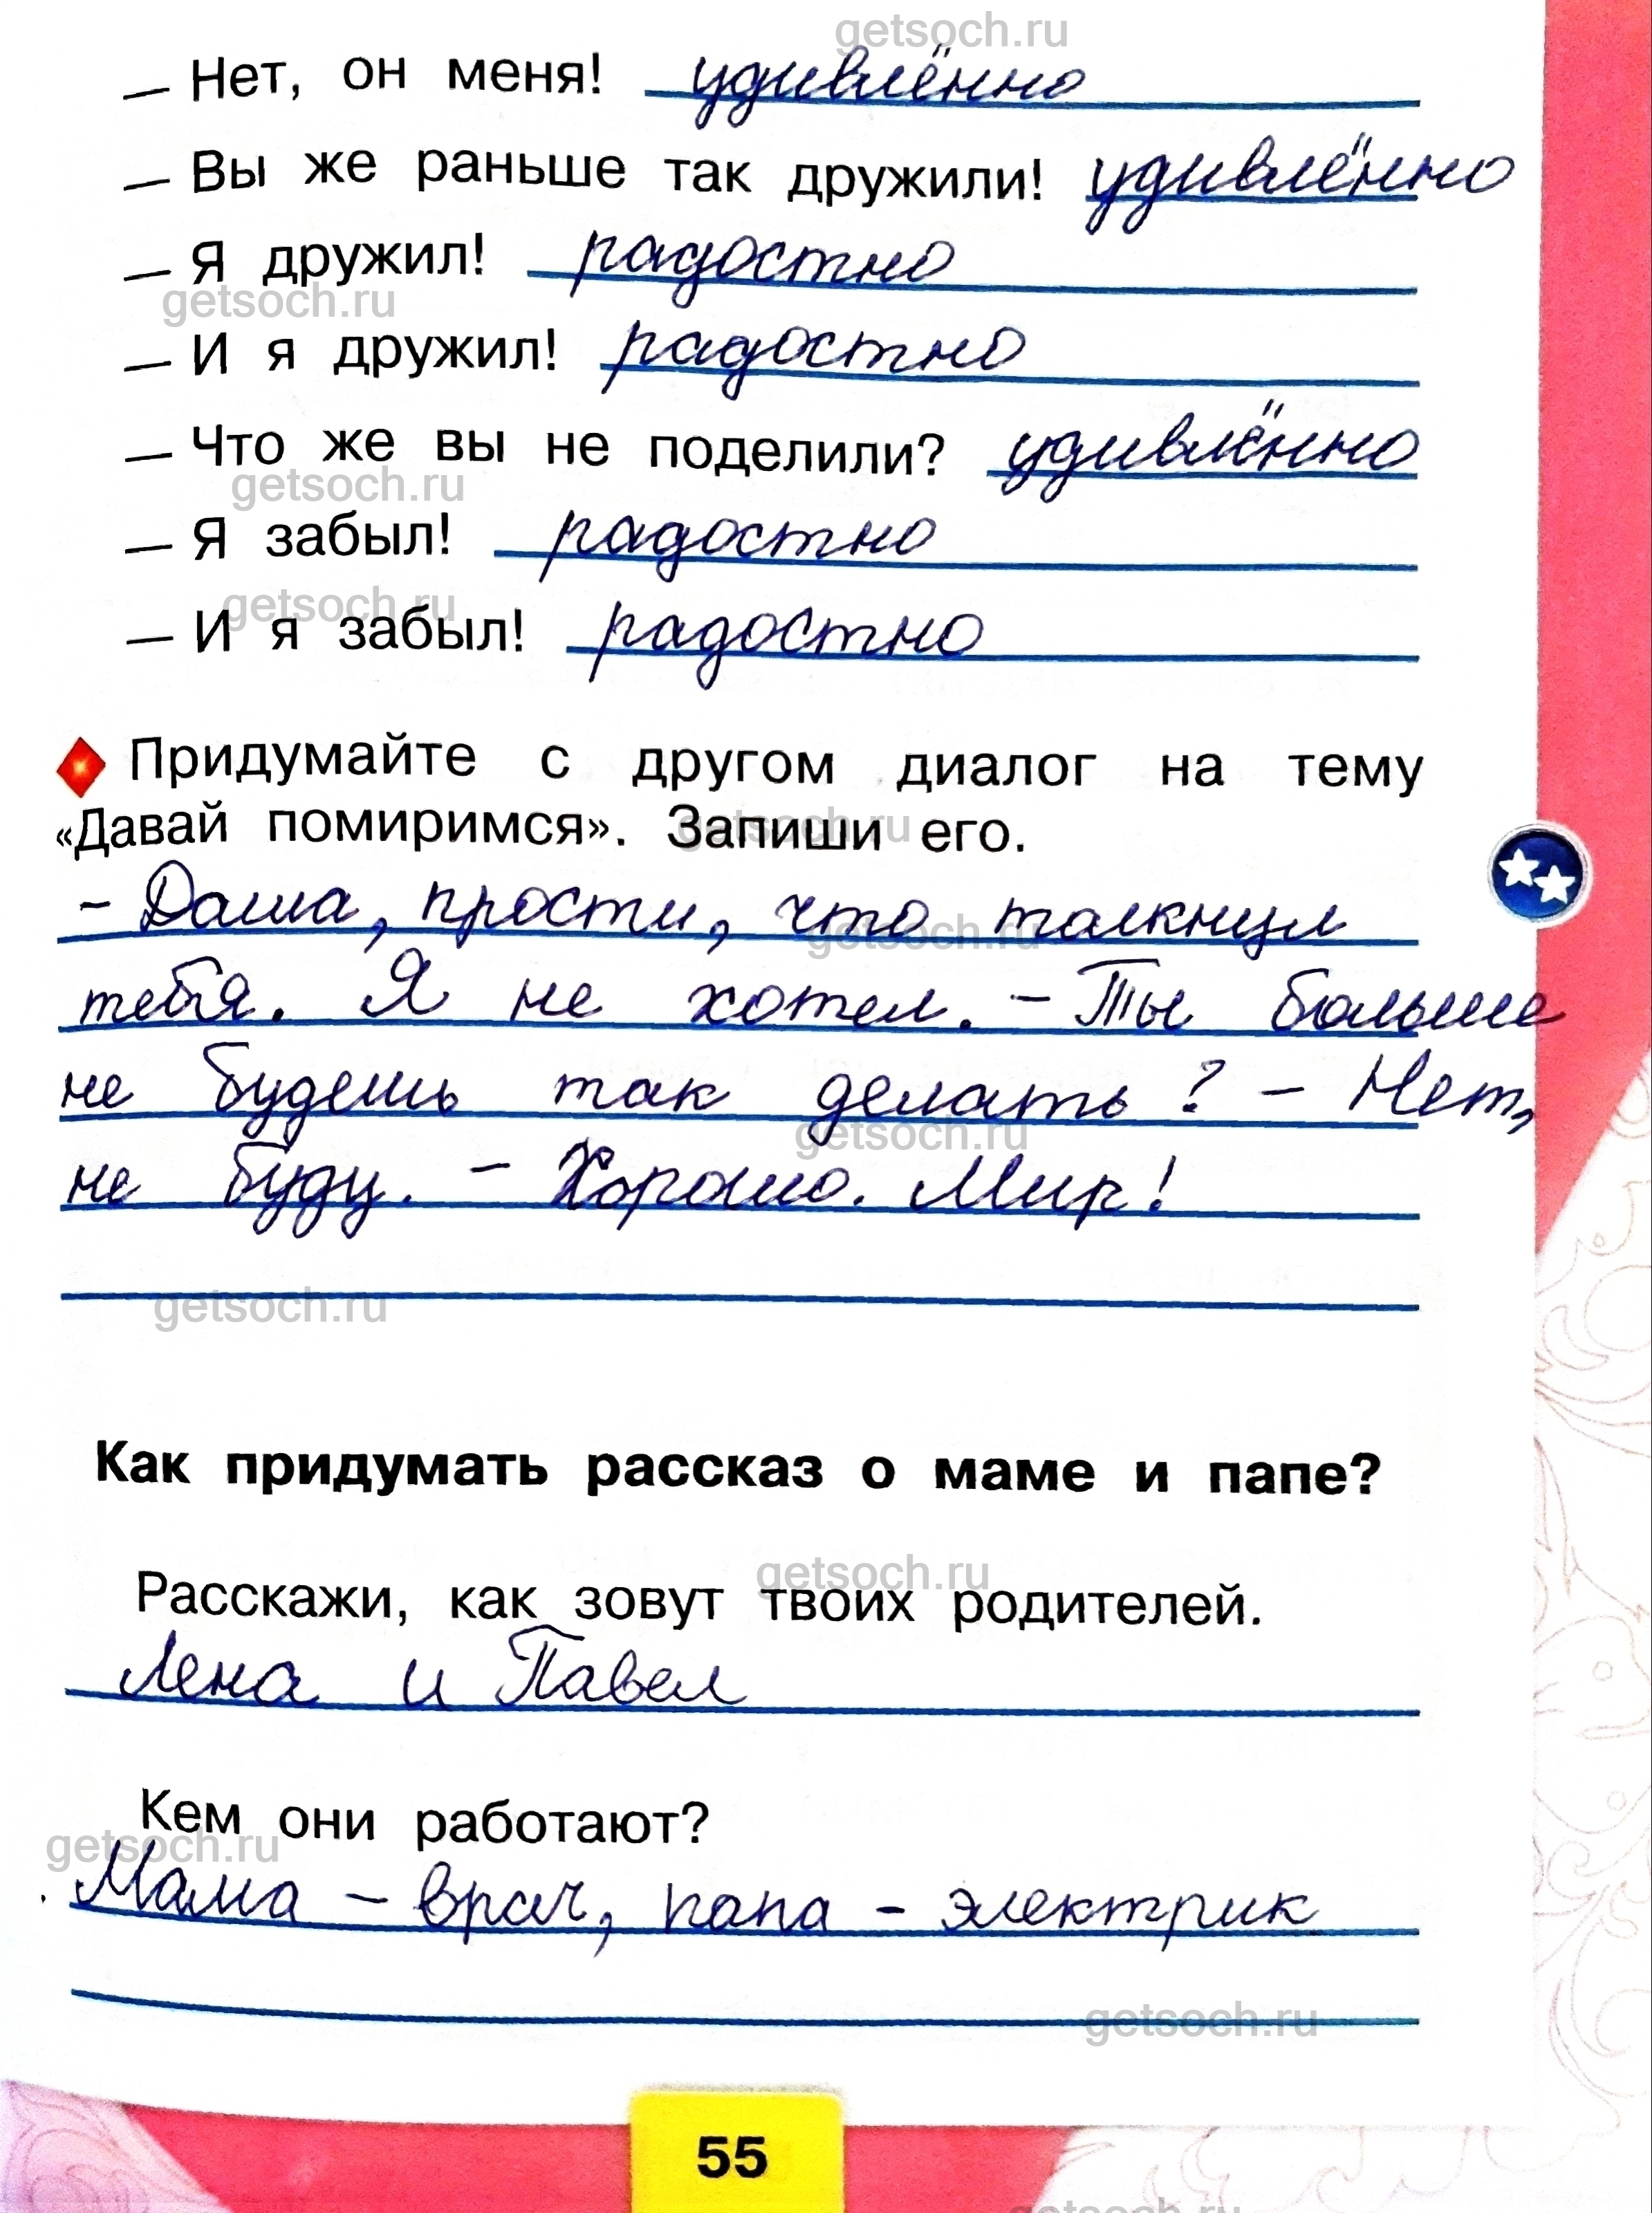 getsoch.ru
— Нет, он меня! удивлённо
— Вы же раньше так дружили! удивлённо
— Я дружил! радостно
getsoch.ru
— И я дружил! радостно
— Что же вы не поделили? удивлённо
getsoch.ru
— Я забыл! радостно
getsoch.ru
— И я забыл! радостно
Придумайте с другом диалог на тему
«Давай помиримся». Запиши его.
getsoch.ru
- Даша, прости, что толкнул
getsoch.ru
тебя. Я не хотел. - Ты больше
не будешь так делать? - Нет,
getsoch.ru
не буду. - Хорошо. Мир!
getsoch.ru
Как придумать рассказ о маме и папе?
getsoch.ru
Расскажи, как зовут твоих родителей.
Лена и Павел
Кем они работают?
getsoch.ru
Мама - врач, папа - электрик
getsoch.ru
55
getsoch.ru